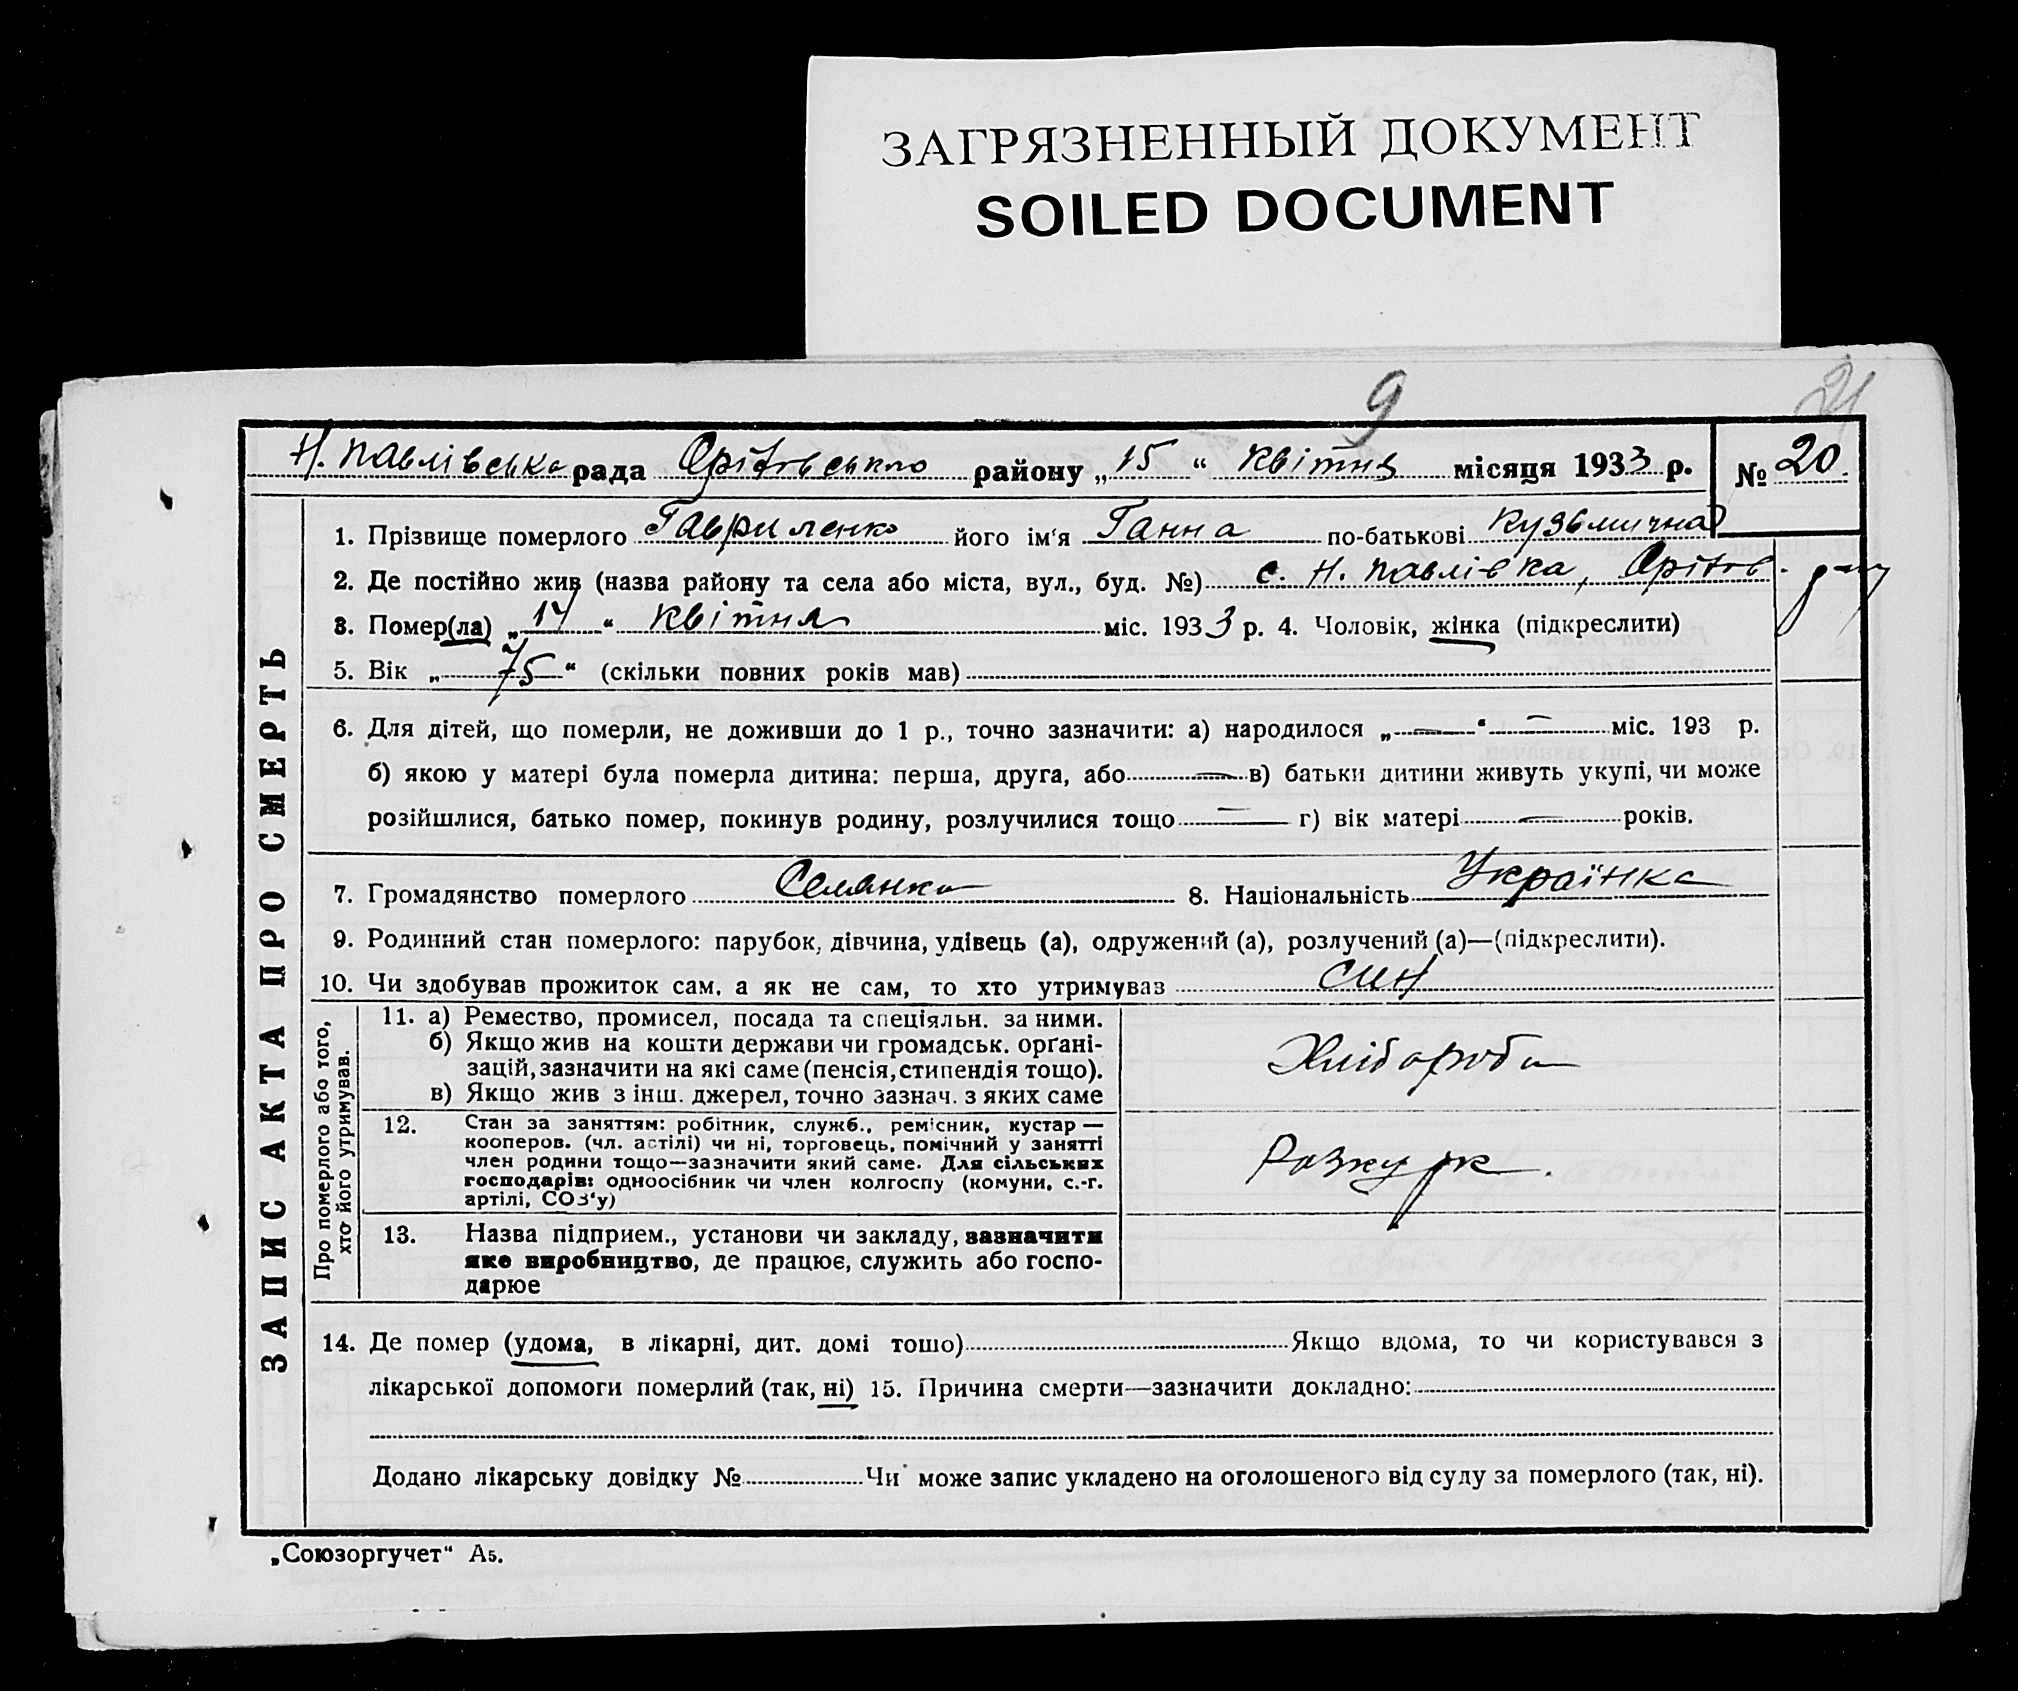 ЗАГРЯЗНЕННЫЙ ДОКУМЕНТ
SOILED DOCUMENT
9
21
Н. Павлівська рада Орітовського району „15" квітня місяця 1933 р. № 20
ЗАПИС АКТА ПРО СМЕРТЬ
1. Прізвище померлого Гавриленко його ім'я Ганна по-батькові Кузьмична
2. Де постійно жив (назва району та села або міста, вул., буд. №) с. Н. Павлівка, Орітов.
3. Помер(ла) „14" квітня міс. 1933 р. 4. Чоловік, жінка (підкреслити)
5. Вік „75" (скільки повних років мав)
6. Для дітей, що померли, не доживши до 1 р., точно зазначити: а) народилося „—"— міс. 193 р.
б) якою у матері була померла дитина: перша, друга, або — в) батьки дитини живуть укупі, чи може
розійшлися, батько помер, покинув родину, розлучилися тощо — г) вік матері — років.
7. Громадянство померлого Селянка 8. Національність Українка
9. Родинний стан померлого: парубок, дівчина, удівець (а), одружений (а), розлучений (а)—(підкреслити).
10. Чи здобував прожиток сам, а як не сам, то хто утримував син
Про померлого або того,
хто його утримував.
11. а) Ремество, промисел, посада та спеціяльн. за ними.
б) Якщо жив на кошти держави чи громадськ. орґані-
зацій, зазначити на які саме (пенсія, стипендія тощо).
в) Якщо жив з інш. джерел, точно зазнач. з яких саме
Хлібороби
12. Стан за заняттям: робітник, служб., ремісник, кустар —
кооперов. (чл. астілі) чи ні, торговець, помічний у занятті
член родини тощо—зазначити який саме. Для сільських
господарів: одноосібник чи член колгоспу (комуни, с.-г.
артілі, СОЗ'у)
Розкурк.
13. Назва підприєм., установи чи закладу, зазначити
яке виробництво, де працює, служить або госпо-
дарює
14. Де помер (удома, в лікарні, дит. домі тошо) Якщо вдома, то чи користувався з
лікарської допомоги померлий (так, ні) 15. Причина смерти—зазначити докладно:
Додано лікарську довідку № Чи може запис укладено на оголошеного від суду за померлого (так, ні).
„Союзоргучет" А5.